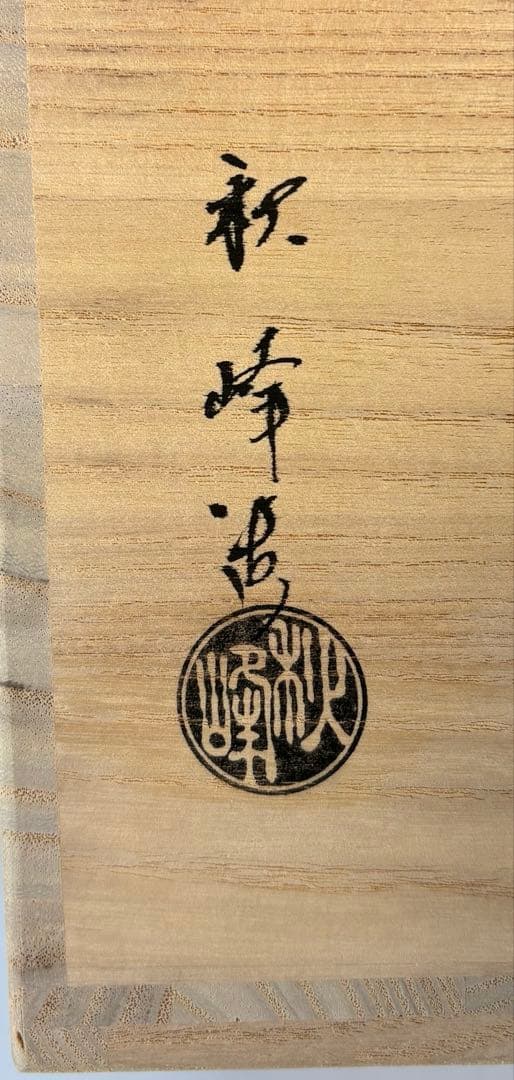 秋峰造
秋峰